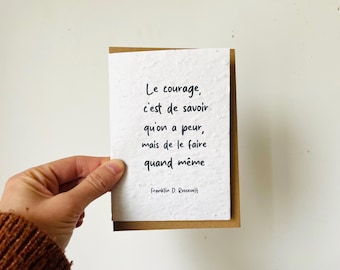 Le courage,
c'est de savoir
qu'on a peur,
mais de le faire
quand même
Franklin D. Roosevelt